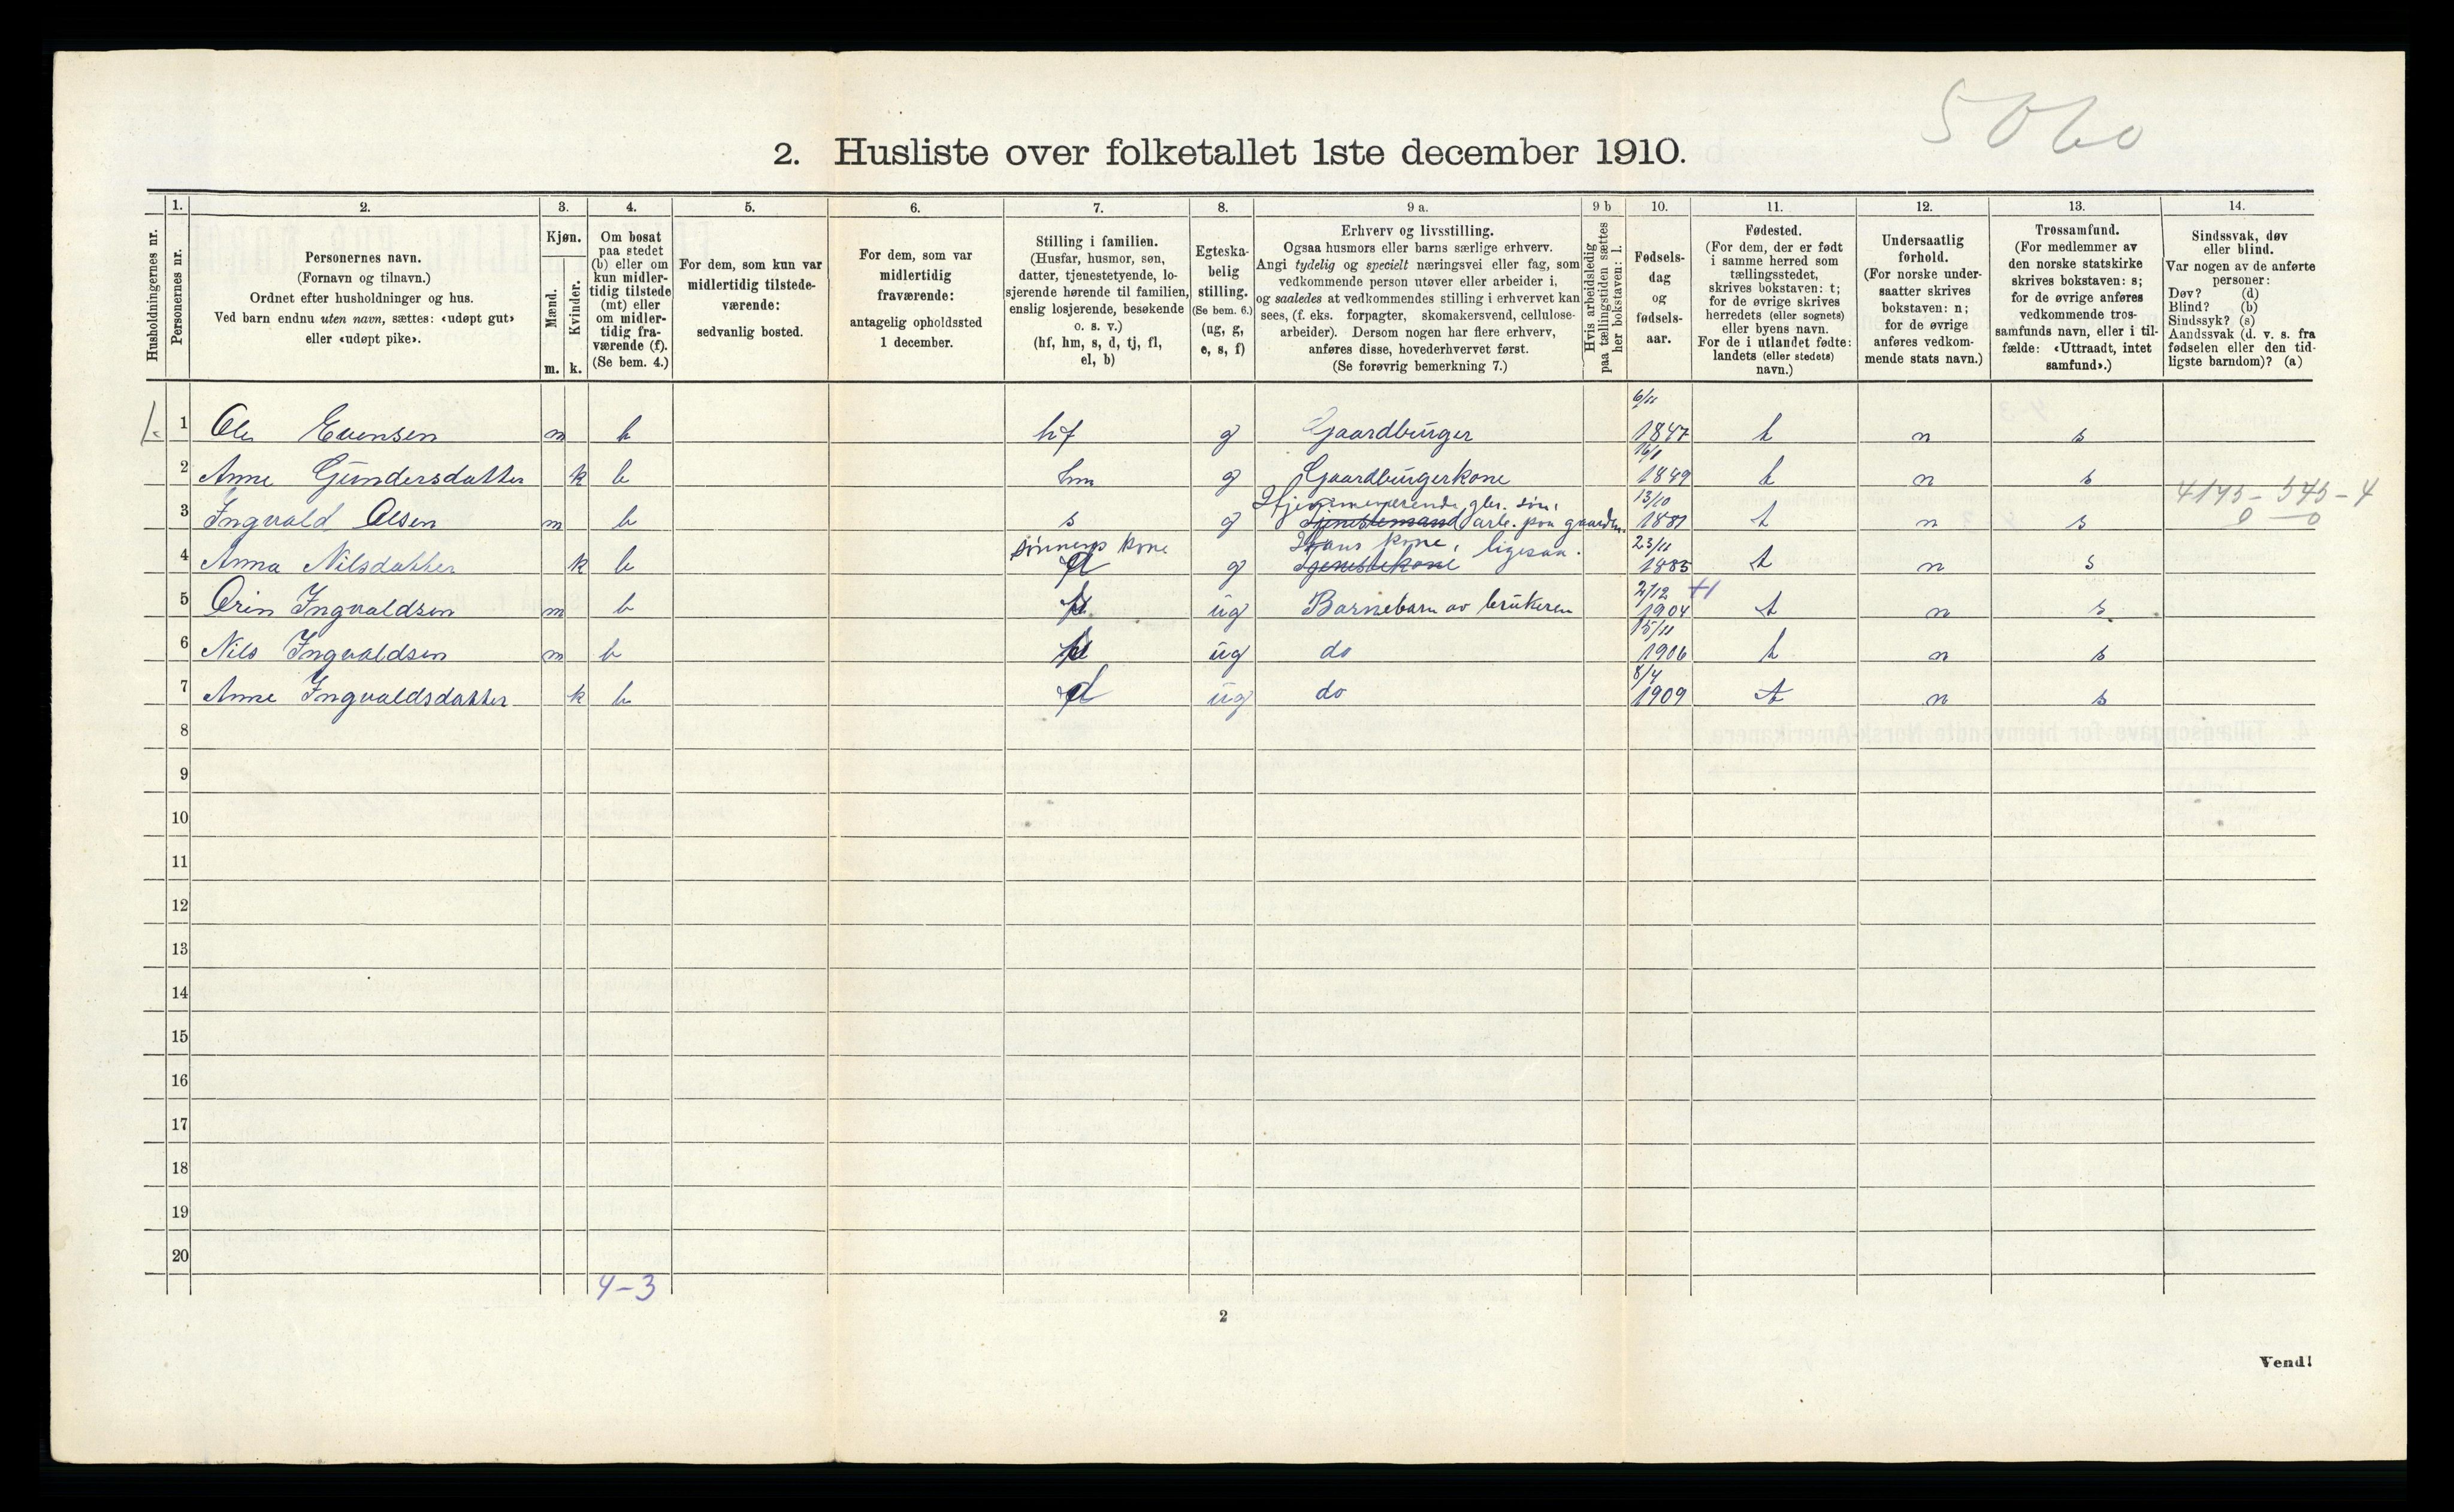 5060
2. Husliste over folketallet 1ste december 1910.
Husholdningernes nr.
1. Personernes nr.
2.
Personernes navn.
(Fornavn og tilnavn.)
Ordnet efter husholdninger og hus.
Ved barn endnu uten navn, sættes: «udøpt gut»
eller «udøpt pike».
3.
Kjøn.
Mænd. Kvinder.
m. k.
4.
Om bosat
paa stedet
(b) eller om
kun midler-
tidig tilstede
(mt) eller
om midler-
tidig fra-
værende (f).
(Se bem. 4.)
5.
For dem, som kun var
midlertidig tilstede-
værende:
sedvanlig bosted.
6.
For dem, som var
midlertidig
fraværende:
antagelig opholdssted
1 december.
7.
Stilling i familien.
(Husfar, husmor, søn,
datter, tjenestetyende, lo-
sjerende hørende til familien,
enslig losjerende, besøkende
o. s. v.)
(hf, hm, s, d, tj, fl,
el, b)
8.
Egteska-
belig
stilling.
(Se bem. 6.)
(ug, g,
e, s, f)
9 a.
Erhverv og livsstilling.
Ogsaa husmors eller barns særlige erhverv.
Angi tydelig og specielt næringsvei eller fag, som
vedkommende person utøver eller arbeider i,
og saaledes at vedkommendes stilling i erhvervet kan
sees, (f. eks. forpagter, skomakersvend, cellulose-
arbeider). Dersom nogen har flere erhverv,
anføres disse, hovederhvervet først.
(Se forøvrig bemerkning 7.)
9 b
Hvis arbeidsledig
paa tællingstiden sættes
her bokstaven: l.
10.
Fødsels-
dag
og
fødsels-
aar.
11.
Fødested.
(For dem, der er født
i samme herred som
tællingsstedet,
skrives bokstaven: t;
for de øvrige skrives
herredets (eller sognets)
eller byens navn.
For de i utlandet fødte:
landets (eller stedets)
navn.)
12.
Undersaatlig
forhold.
(For norske under-
saatter skrives
bokstaven: n;
for de øvrige
anføres vedkom-
mende stats navn.)
13.
Trossamfund.
(For medlemmer av
den norske statskirke
skrives bokstaven: s;
for de øvrige anføres
vedkommende tros-
samfunds navn, eller i til-
fælde: «Uttraadt, intet
samfund».)
14.
Sindssvak, døv
eller blind.
Var nogen av de anførte
personer:
Døv? (d)
Blind? (b)
Sindssyk? (s)
Aandssvak (d. v. s. fra
fødselen eller den tid-
ligste barndom)? (a)
1. 1 Ole Evensen m b hf g Gaardbruger 6/11 1847 t n s
2 Anne Gundersdatter k b hm g Gaardbrugerkone 16/1 1849 t n s
3 Ingvald Olsen m b s g Hjemmeværende gbr. søn, Tjenestemand arb. paa gaarden. 13/10 1881 t n s
4 Anna Nilsdatter k b sønnens kone d g Hans kone, ligesaa. Tjenestekone 23/11 1885 t n s
5 Orin Ingvaldsen m b ug Barnebarn av brukeren 2/12 1904 t n s
6 Nils Ingvaldsen m b ug do 15/11 1906 t n s
7 Anne Ingvaldsdatter k b d ug do 8/4 1909 t n s
8
9
10
11
12
13
14
15
16
17
18
19
20
4-3
2
Vend!